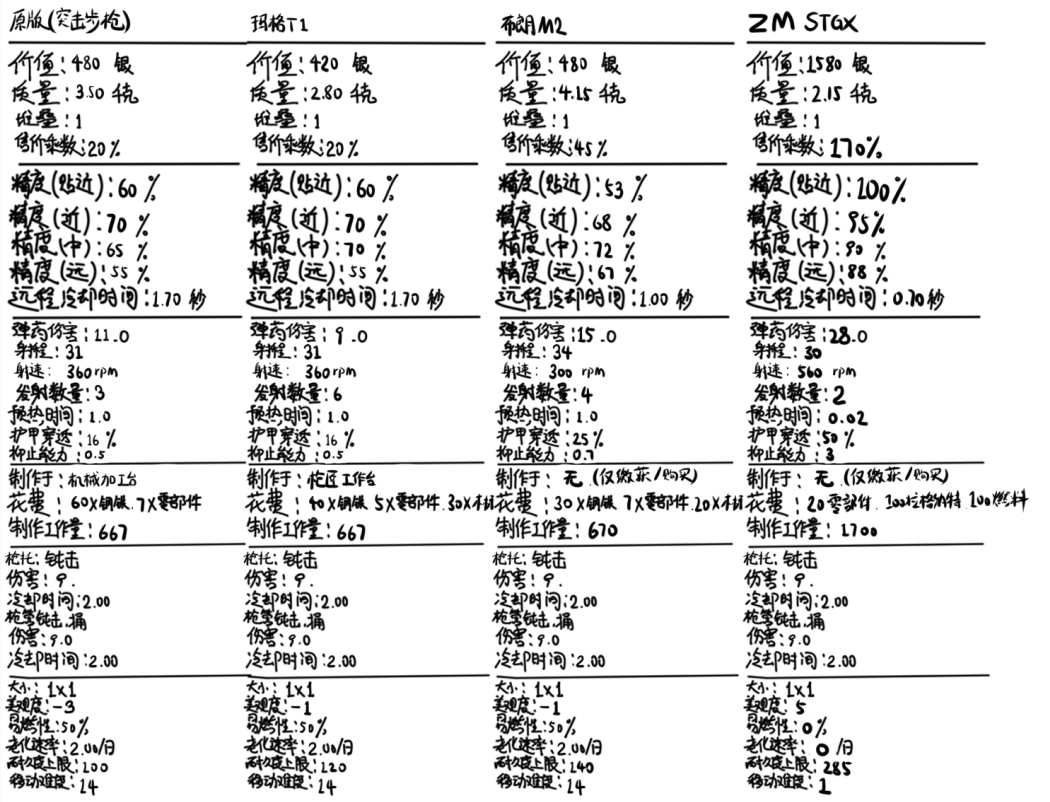 原版(突击步枪)
价值:480 银
质量:3.50 千克
堆叠:1
售价乘数:20%
精度(贴近):60 %
精度(近):70 %
精度(中):65 %
精度(远):55 %
远程冷却时间:1.70 秒
弹药伤害:11.0
射程:31
射速:360rpm
发射数量:3
预热时间:1.0
护甲穿透:16 %
抑止能力:0.5
制作于:机械加工台
花费:60X钢铁.7X零部件
制作工作量:667
枪托:钝击
伤害:9.
冷却时间:2.00
枪管钝击,捅
伤害:9.0
冷却时间:2.00
大小:1x1
美观度:-3
易燃性:50%
老化速率:2.00/日
耐久度上限:100
移动难度:14
玛格T1
价值:420 银
质量:2.80 千克
堆叠:1
售价乘数:20%
精度(贴近):60 %
精度(近):70 %
精度(中):70 %
精度(远):55 %
远程冷却时间:1.70 秒
弹药伤害:9.0
射程:31
射速:360rpm
发射数量:6
预热时间:1.0
护甲穿透:16 %
抑止能力:0.5
制作于:枪匠工作台
花费:40X钢铁 5X零部件.30X木材
制作工作量:667
枪托:钝击
伤害:9.
冷却时间:2.00
枪管钝击,捅
伤害:9.0
冷却时间:2.00
大小:1x1
美观度:-1
易燃性:50%
老化速率:2.00/日
耐久度上限:120
移动难度:14
布朗M2
价值:480 银
质量:4.15 千克
堆叠:1
售价乘数:45%
精度(贴近):53 %
精度(近):68 %
精度(中):72 %
精度(远):67 %
远程冷却时间:1.00 秒
弹药伤害:15.0
射程:34
射速:300 rpm
发射数量:4
预热时间:1.0
护甲穿透:25%
抑止能力:0.7
制作于:无.(仅缴获/购买)
花费:30X钢铁 7X零部件.20X木材
制作工作量:670
枪托:钝击
伤害:9.
冷却时间:2.00
枪管钝击,捅
伤害:9.0
冷却时间:2.00
大小:1x1
美观度:-1
易燃性:50%
老化速率:2.00/日
耐久度上限:140
移动难度:14
ZM STGX
价值:1580 银
质量:2.15 千克
堆叠:1
售价乘数:170%
精度(贴近):100%
精度(近):95%
精度(中):90 %
精度(远):88 %
远程冷却时间:0.70秒
弹药伤害:28.0
射程:30
射速:560 rpm
发射数量:2
预热时间:0.02
护甲穿透:50 %
抑止能力:3
制作于:无.(仅缴获/购买)
花费:20零部件.100拉格纳特.100燃料
制作工作量:1700
枪托:钝击
伤害:9.
冷却时间:2.00
枪管钝击,捅
伤害:9.0
冷却时间:2.00
大小:1x1
美观度:5
易燃性:0%
老化速率:0/日
耐久度上限:285
移动难度:1